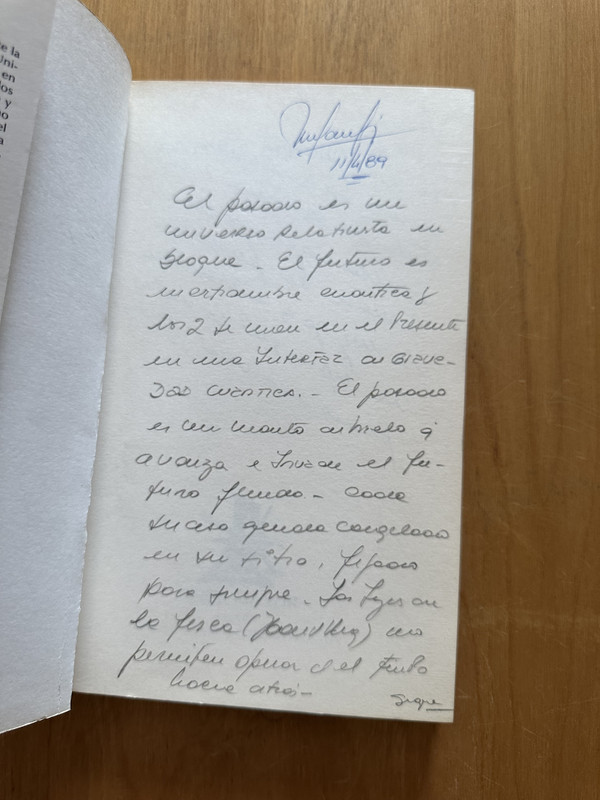 e la
Uni-
en
los
y
no
el
a
11/4/89
El pasado es un
universo relativista en
bloque. El futuro es
incertidumbre cuántica y
los 2 se unen en el Presente
en una de GRAVE-
DAD CUÁNTICA. - El pasado
es un manto de hielo q
avanza e el fu-
turo fluido - Cada
suceso queda congelado
en su sitio, fijado
para siempre. Las Leyes de
la física no
permiten
hacia atrás -
Sigue